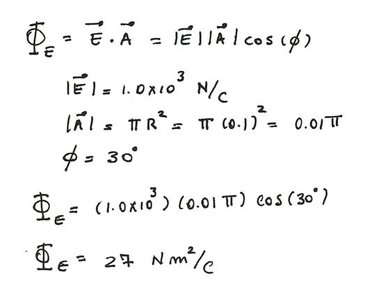 Φ⃗_E = E⃗ · A⃗ = |E⃗| |A⃗| cos(ϕ)
|E⃗| = 1.0x10³ N/C
|A⃗| = πR² = π(0.1)² = 0.01π
ϕ = 30°
Φ_E = (1.0x10³)(0.01π) cos(30°)
Φ_E = 27 Nm²/C